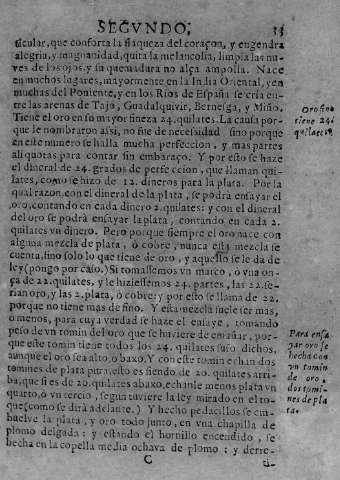 SEGVNDO; 33
ticular, que conforta la flaqueza del coraçon, y engendra
alegria, y magnanidad, quita la melancolia, limpia las nu-
ves de los ojos, y su quemadura no alça ampolla. Nace
en muchos lugares, mayormente en la India Oriental, y en
muchas del Poniente, y en los Rios de España se cria en-
tre las arenas de Tajo, Guadalquivir, Bernesga, y Miño.
Tiene el oro en su mayor fineza 24. quilates. La causa por-
que le nombraron assi, no fue de necessidad sino porque
en este numero se halla mucha perfeccion, y mas partes
aliquotas para contar sin embaraço. Y por esto se haze
el dineral de 24. grados de perfeccion, que llaman qui-
lates, como se hizo de 12. dineros para la plata. Por la
qual razon, con el dineral de la plata, se podrà ensayar el
oro, contando en cada dinero 2. quilates: y con el dineral
del oro se podrà ensayar la plata, contando en cada 2.
quilates vn dinero. Pero porque siempre el oro nace con
alguna mezcla de plata, ò cobre, nunca esta mezcla se
cuenta, sino solo lo que tiene de oro, y aquello se le da de
ley (pongo por caso.) Si tomassemos vn marco, ò vna on-
ça de 22. quilates, y le hiziessemos 24. partes, las 22. se-
rian oro, y las 2. plata, ò cobre; y por esto se llama de 22.
porque no tiene mas de fino. Y esta mezcla suele ser mas,
ò menos, para cuya verdad se haze el ensaye, tomando
peso de vn tomin del oro que se huviere de ensayar, por-
que este tomin tiene todos los 24. quilates suso dichos,
aunque el oro sea alto, ò baxo. Y con este tomin echan dos
tomines de plata pura, esto es siendo de 20. quilates arri-
ba, que si es de 20. quilates abaxo, echanle menos plata vn
quarto, ò vn tercio, segun tuviere la ley mirado en el to-
que (como se dirà adelante.) Y hecho pedacillos se em-
buelve la plata, y oro todo junto, en vna chapilla de
plomo delgada: y estando el hornillo encendido, se
hecha en la copella media ochava de plomo; y derre-
C ti-
Oro fino
tiene 24.
quilates.
Para ensa-
yar oro se
hecha con
vn tomin
de oro,
dos tomi-
nes de pla
ta.